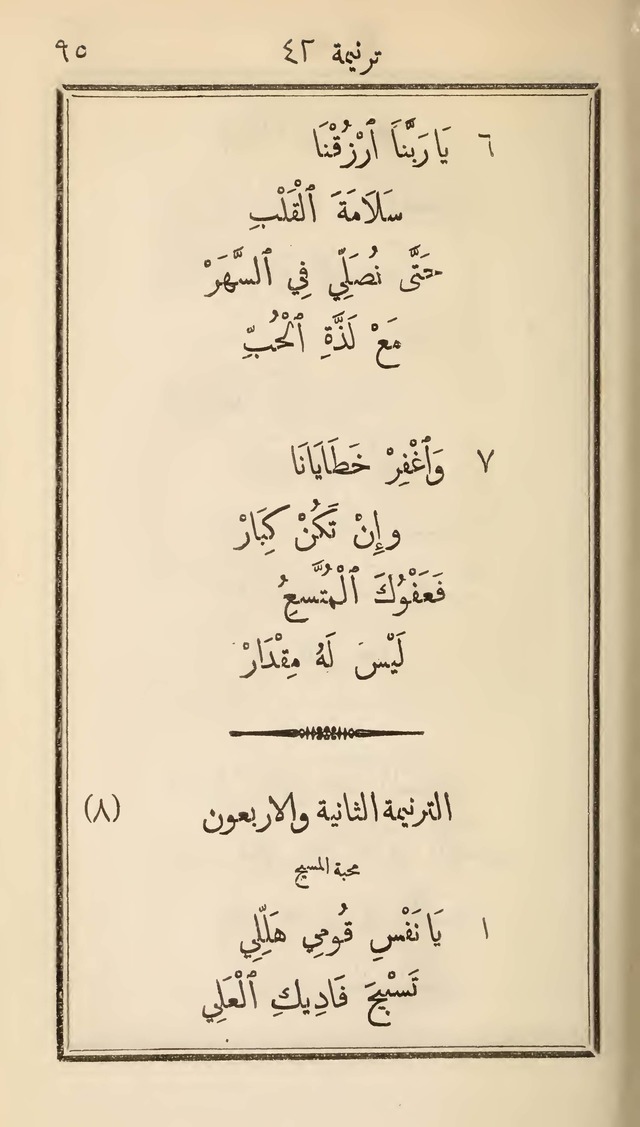 ترنيمة ٤٢ ٩٥
٦ يَا رَبَّنَا ٱرْزُقْنَا
سَلَامَةَ ٱلْقَلْبِ
حَتَّى نُصَلِّي فِي ٱلسَّهَرْ
مَعْ لَذَّةِ ٱلْحُبِّ
٧ وَٱغْفِرْ خَطَايَانَا
وإِنْ تَكُنْ كِبَارْ
فَعَفْوُكَ ٱلْمُتَّسِعُ
لَيْسَ لَهُ مِقْدَارْ
الترنيمة الثانية والاربعون (٨)
محبة المسيح
١ يَا نَفْسِ قُومِي هَلِّلِي
تَسْبِيحَ فَادِيكِ ٱلْعَلِي